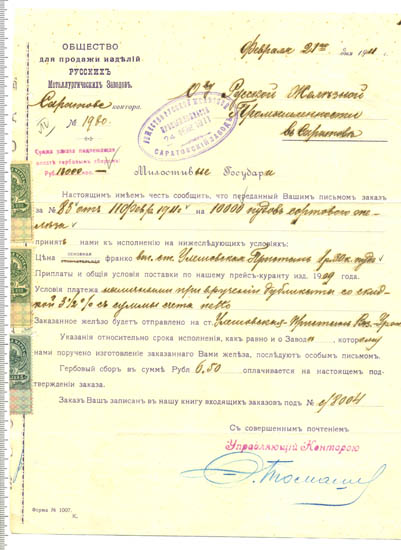 ОБЩЕСТВО
для продажи издѣлій
РУССКИХЪ
Металлургическихъ Заводовъ.
Саратове контора.
№ 1980.
Февраля 21 дня 1911 г.
О-у Русской Желѣзной
Промышленности
въ Саратовѣ
Сумма заказа подлежащая
оплатѣ гербовымъ сборомъ
Руб. 13000
24 ФЕВ 1911
САРАТОВСКІЙ ЗАВОДЪ
Милостивые Государи
Настоящимъ имѣемъ честь сообщить, что переданный Вашимъ письмомъ заказ
за № 88 отъ 11 Февр 1911 на 10000 пудовъ сортового же-
лѣза
принятъ нами къ исполненію на нижеслѣдующихъ условіяхъ:
Цѣна основная франко вг. ст. Увековская-Пристань
Приплаты и общія условія поставки по нашему прейсъ-куранту изд. 1909 года.
Условія платежа наличными при врученіи дубликата со скид-
кой 3½% съ суммы счета нетто
Заказанное желѣзо будетъ отправлено на ст. Увековская-Пристань
Указанія относительно срока исполненія, какъ равно и о Заводѣ, которому
нами поручено изготовленіе заказаннаго Вами желѣза, послѣдуютъ особымъ письмомъ.
Гербовый сборъ въ суммѣ Руб. 6.50 оплачивается на настоящемъ под-
твержденіи заказа.
Заказъ Вашъ записанъ въ нашу книгу входящихъ заказовъ подъ № с/8004
Съ совершеннымъ почтеніемъ
Управляющій Конторою
Форма № 1007.
К.